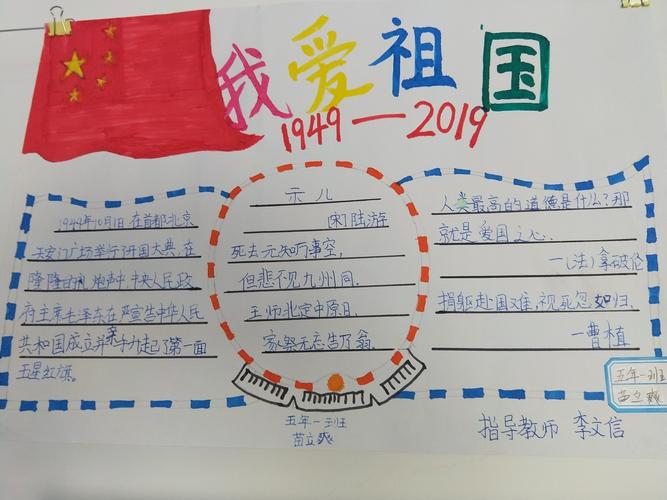 我爱祖国
1949—2019
1949年10月1日,在首都北京
天安门广场举行开国大典,在
隆隆的礼炮声中,中央人民政
府主席毛泽东在严宣告中华人民
共和国成立并亲手升起了第一面
五星红旗。
示儿
[宋]陆游
死去元知万事空,
但悲不见九州同.
王师北定中原日,
家祭无忘告乃翁.
人类最高的道德是什么?那
就是爱国之心.
—(法)拿破伦
捐躯赴国难,视死忽如归.
—曹植
五年一班
苗立爽
五年一班
苗立爽
指导教师 李文信